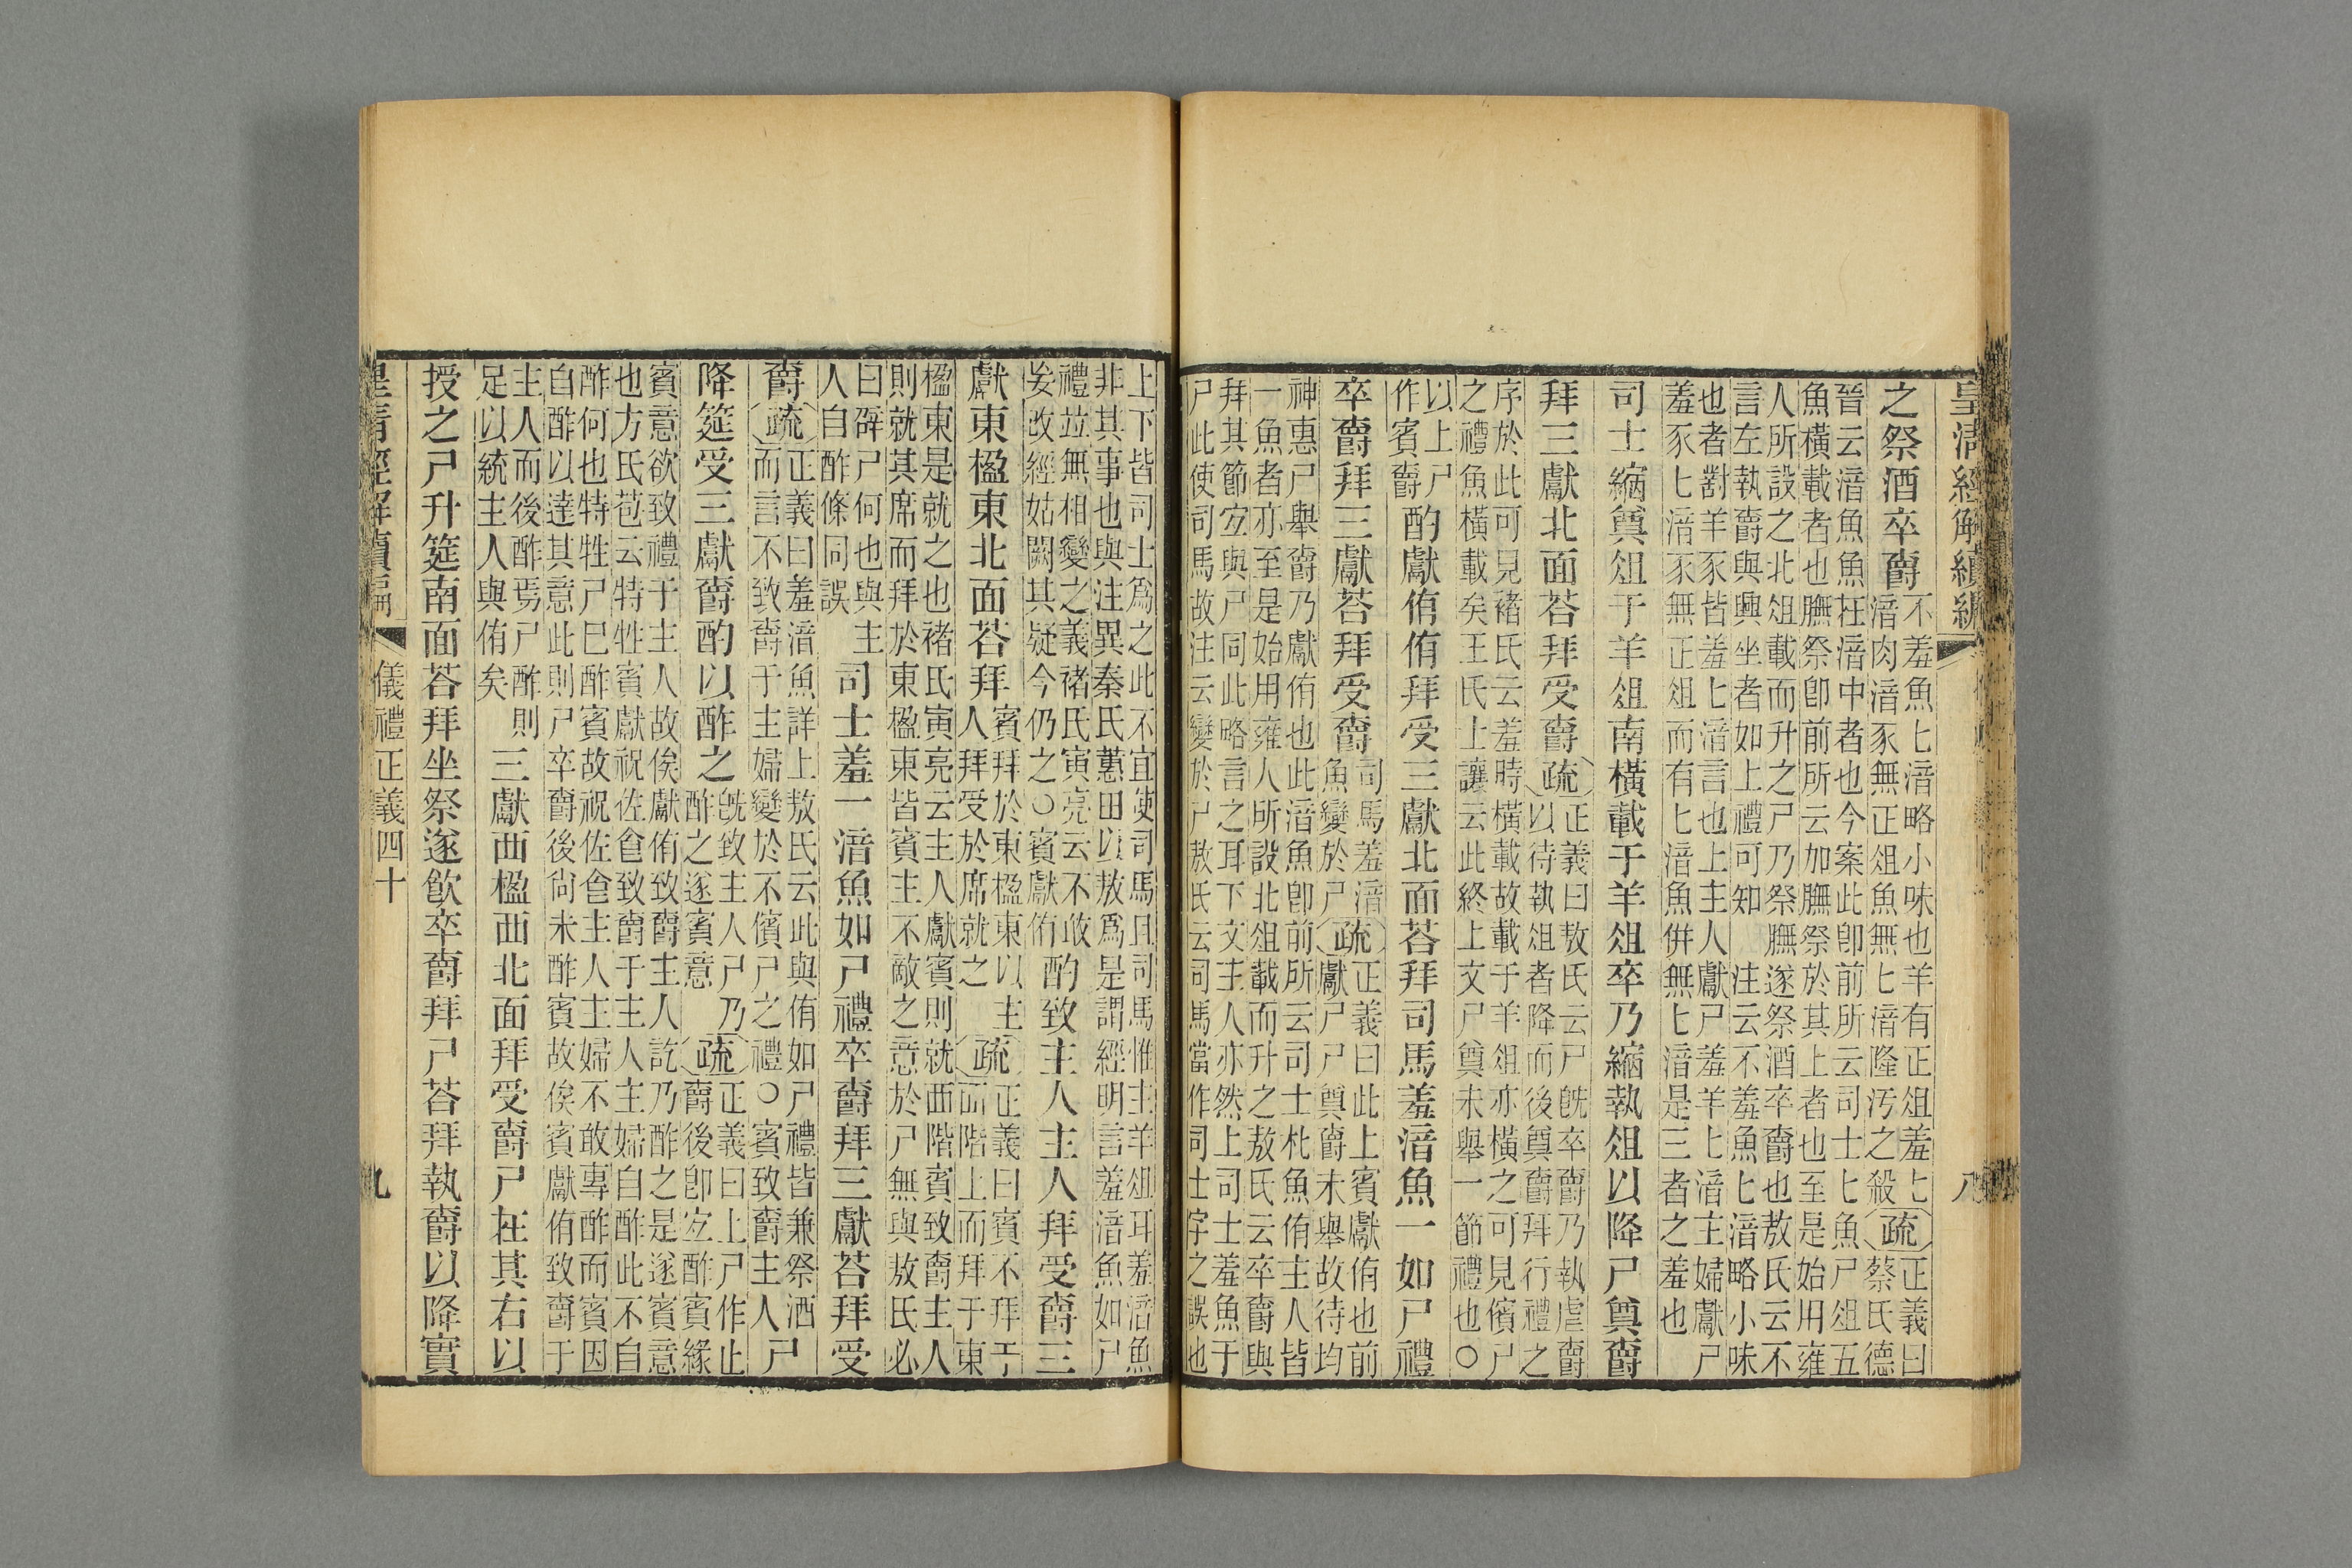 皇清經解續編
八
之祭酒卒爵
不羞魚匕湆略小味也羊有正俎羞匕
湆肉湆豕無正俎魚無匕湆隆汚之殺
疏
正義曰
蔡氏德
晉云湆魚魚在湆中者也今案此卽前所云司士匕魚尸俎五
魚橫載者也膴祭卽前所云加膴祭於其上者也至是始用雍
人所設之北俎載而升之尸乃祭膴遂祭酒卒爵也敖氏云不
言左執爵與興坐者如上禮可知 注云不羞魚匕湆略小味
也者對羊豕皆羞匕湆言也上主人獻尸羞羊匕湆主婦獻尸
羞豕匕湆豕無正俎而有匕湆魚併無匕湆是三者之羞也
司士縮奠俎于羊俎南橫載于羊俎卒乃縮執俎以降尸奠爵
拜三獻北面荅拜受爵
疏
正義曰敖氏云尸旣卒爵乃執虛爵
以待執俎者降而後奠爵拜行禮之
序於此可見褚氏云羞時橫載故載于羊俎亦橫之可見儐尸
之禮魚橫載矣王氏士讓云此終上文尸奠未舉一節禮也○
以上尸
作賓爵
酌獻侑侑拜受三獻北面荅拜司馬羞湆魚一如尸禮
卒爵拜三獻荅拜受爵
司馬羞湆
魚變於尸
疏
正義曰此上賓獻侑也前
獻尸尸奠爵未舉故待均
神惠尸舉爵乃獻侑也此湆魚卽前所云司士朼魚侑主人皆
一魚者亦至是始用雍人所設北俎載而升之敖氏云卒爵與
拜其節宜與尸同此略言之耳下文主人亦然上司士羞魚于
尸此使司馬故注云變於尸敖氏云司馬當作司士字之誤也
上下皆司士爲之此不宜使司馬且司馬惟主羊俎耳羞湆魚
非其事也與注異秦氏蕙田以敖爲是謂經明言羞湆魚如尸
禮並無相變之義褚氏寅亮云不敢
妄改經姑闕其疑今仍之○賓獻侑
酌致主人主人拜受爵三
獻東楹東北面荅拜
賓拜於東楹東以主
人拜受於席就之
疏
正義曰賓不拜于
西階上而拜于東
楹東是就之也褚氏寅亮云主人獻賓則就西階賓致爵主人
則就其席而拜於東楹東皆賓主不敵之意於尸無與敖氏必
曰辟尸何也與主
人自酢條同誤
司士羞一湆魚如尸禮卒爵拜三獻荅拜受
爵
疏
正義曰羞湆魚詳上敖氏云此與侑如尸禮皆兼祭酒尸
而言不致爵于主婦變於不儐尸之禮○賓致爵主人尸
降筵受三獻爵酌以酢之
旣致主人尸乃
酢之遂賓意
疏
正義曰上尸作止
爵後卽宜酢賓緣
賓意欲致禮于主人故俟獻侑致爵主人訖乃酢之是遂賓意
也方氏苞云特牲賓獻祝佐食致爵于主人主婦自酢此不自
酢何也特牲尸已酢賓故祝佐食主人主婦不敢專酢而賓因
自酢以達其意此則尸卒爵後尙未酢賓故俟賓獻侑致爵于
主人而後酢焉尸酢則
足以統主人與侑矣
三獻西楹西北面拜受爵尸在其右以
授之尸升筵南面荅拜坐祭遂飮卒爵拜尸荅拜執爵以降實
皇淸經解續編
儀禮正義四十
九